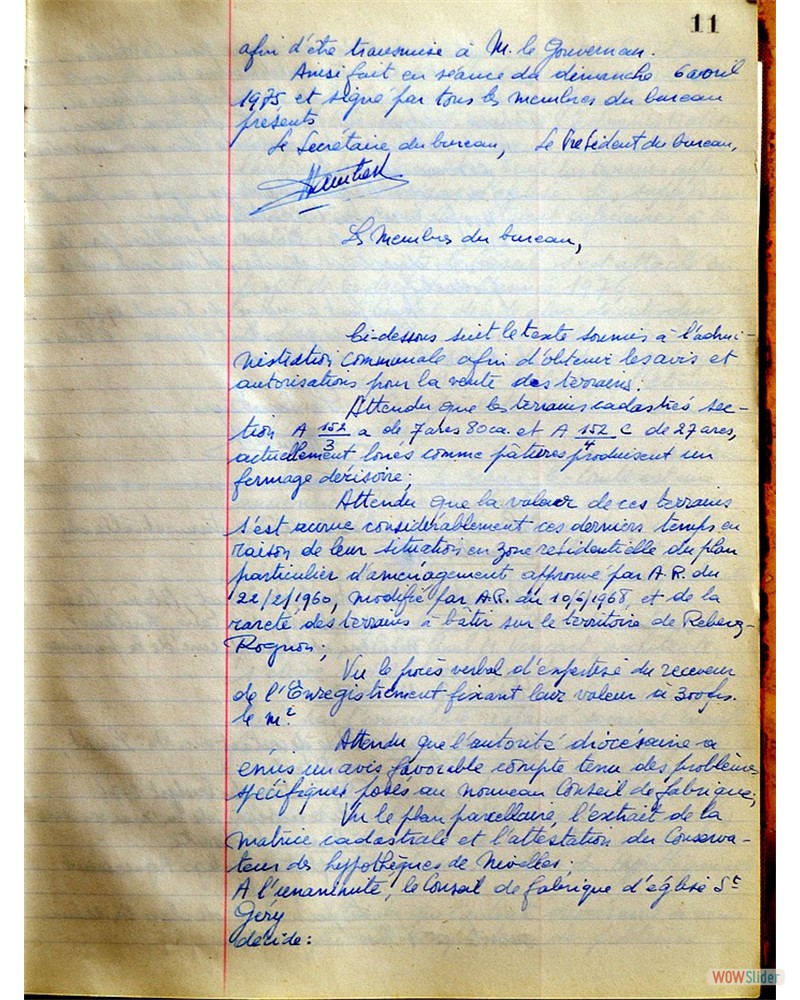 11
afin d'être transmise à M. le Gouverneur.
Ainsi fait en séance du dimanche 6 avril
1975 et signé par tous les membres du bureau
présents
Le Secrétaire du bureau, Le Président du bureau,
Les Membres du bureau,
Ci-dessous suit le texte soumis à l'admi-
nistration communale afin d'obtenir les avis et
autorisations pour la vente des terrains:
Attendu que les terrains cadastrés sec-
tion A 152/3 a de 7 ares 80 ca. et A 152/4 c de 27 ares,
actuellement loués comme pâtures produisent un
fermage dérisoire;
Attendu que la valeur de ces terrains
s'est accrue considérablement ces derniers temps en
raison de leur situation en zone résidentielle du plan
particulier d'aménagement approuvé par A.R. du
22/2/1960, modifié par A.R. du 10/6/1968, et de la
rareté des terrains à bâtir sur le territoire de Rebecq-
Rognon;
Vu le procès verbal d'expertise du receveur
de l'Enregistrement fixant leur valeur à 300 frs.
le m²
Attendu que l'autorité diocésaine a
émis un avis favorable compte tenu des problèmes
spécifiques posés au nouveau Conseil de fabrique;
Vu le plan parcellaire, l'extrait de la
matrice cadastrale et l'attestation du Conserva-
teur des hypothèques de Nivelles;
A l'unanimité, le Conseil de fabrique d'église St
Géry
décide:
WOWSlider